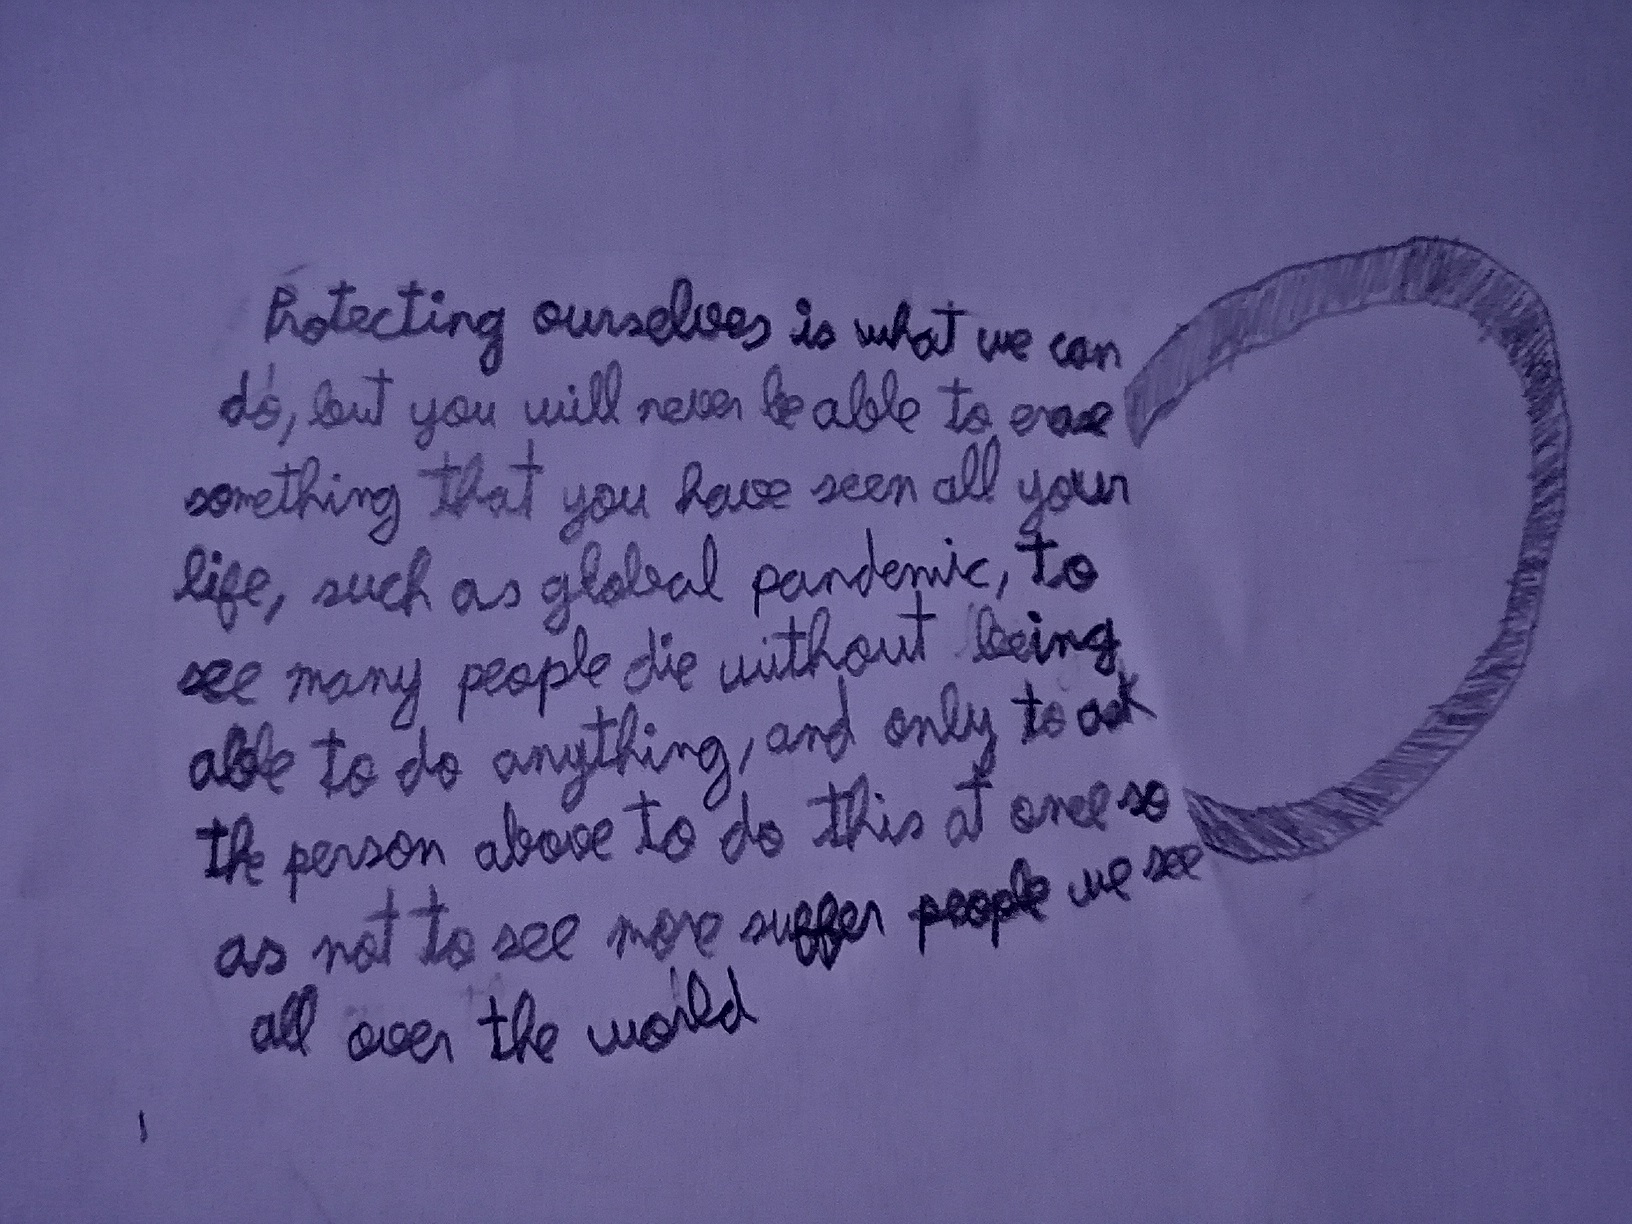 Protecting ourselves is what we can
do, but you will never be able to erase
something that you have seen all your
life, such as global pandemic, to
see many people die without being
able to do anything, and only to ask
the person above to do this at once so
as not to see more suffer people we see
all over the world